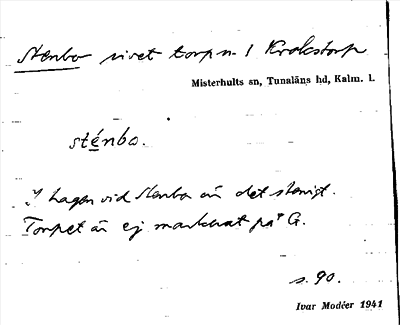 Stenbo rivet torp n. I Krokstorp
Misterhults sn, Tunaläns hd, Kalm. l.
sténbo.
I hagen vid Stenbo är det stenigt.
Torpet är ej markerat på G.
s. 90.
Ivar Modéer 1941